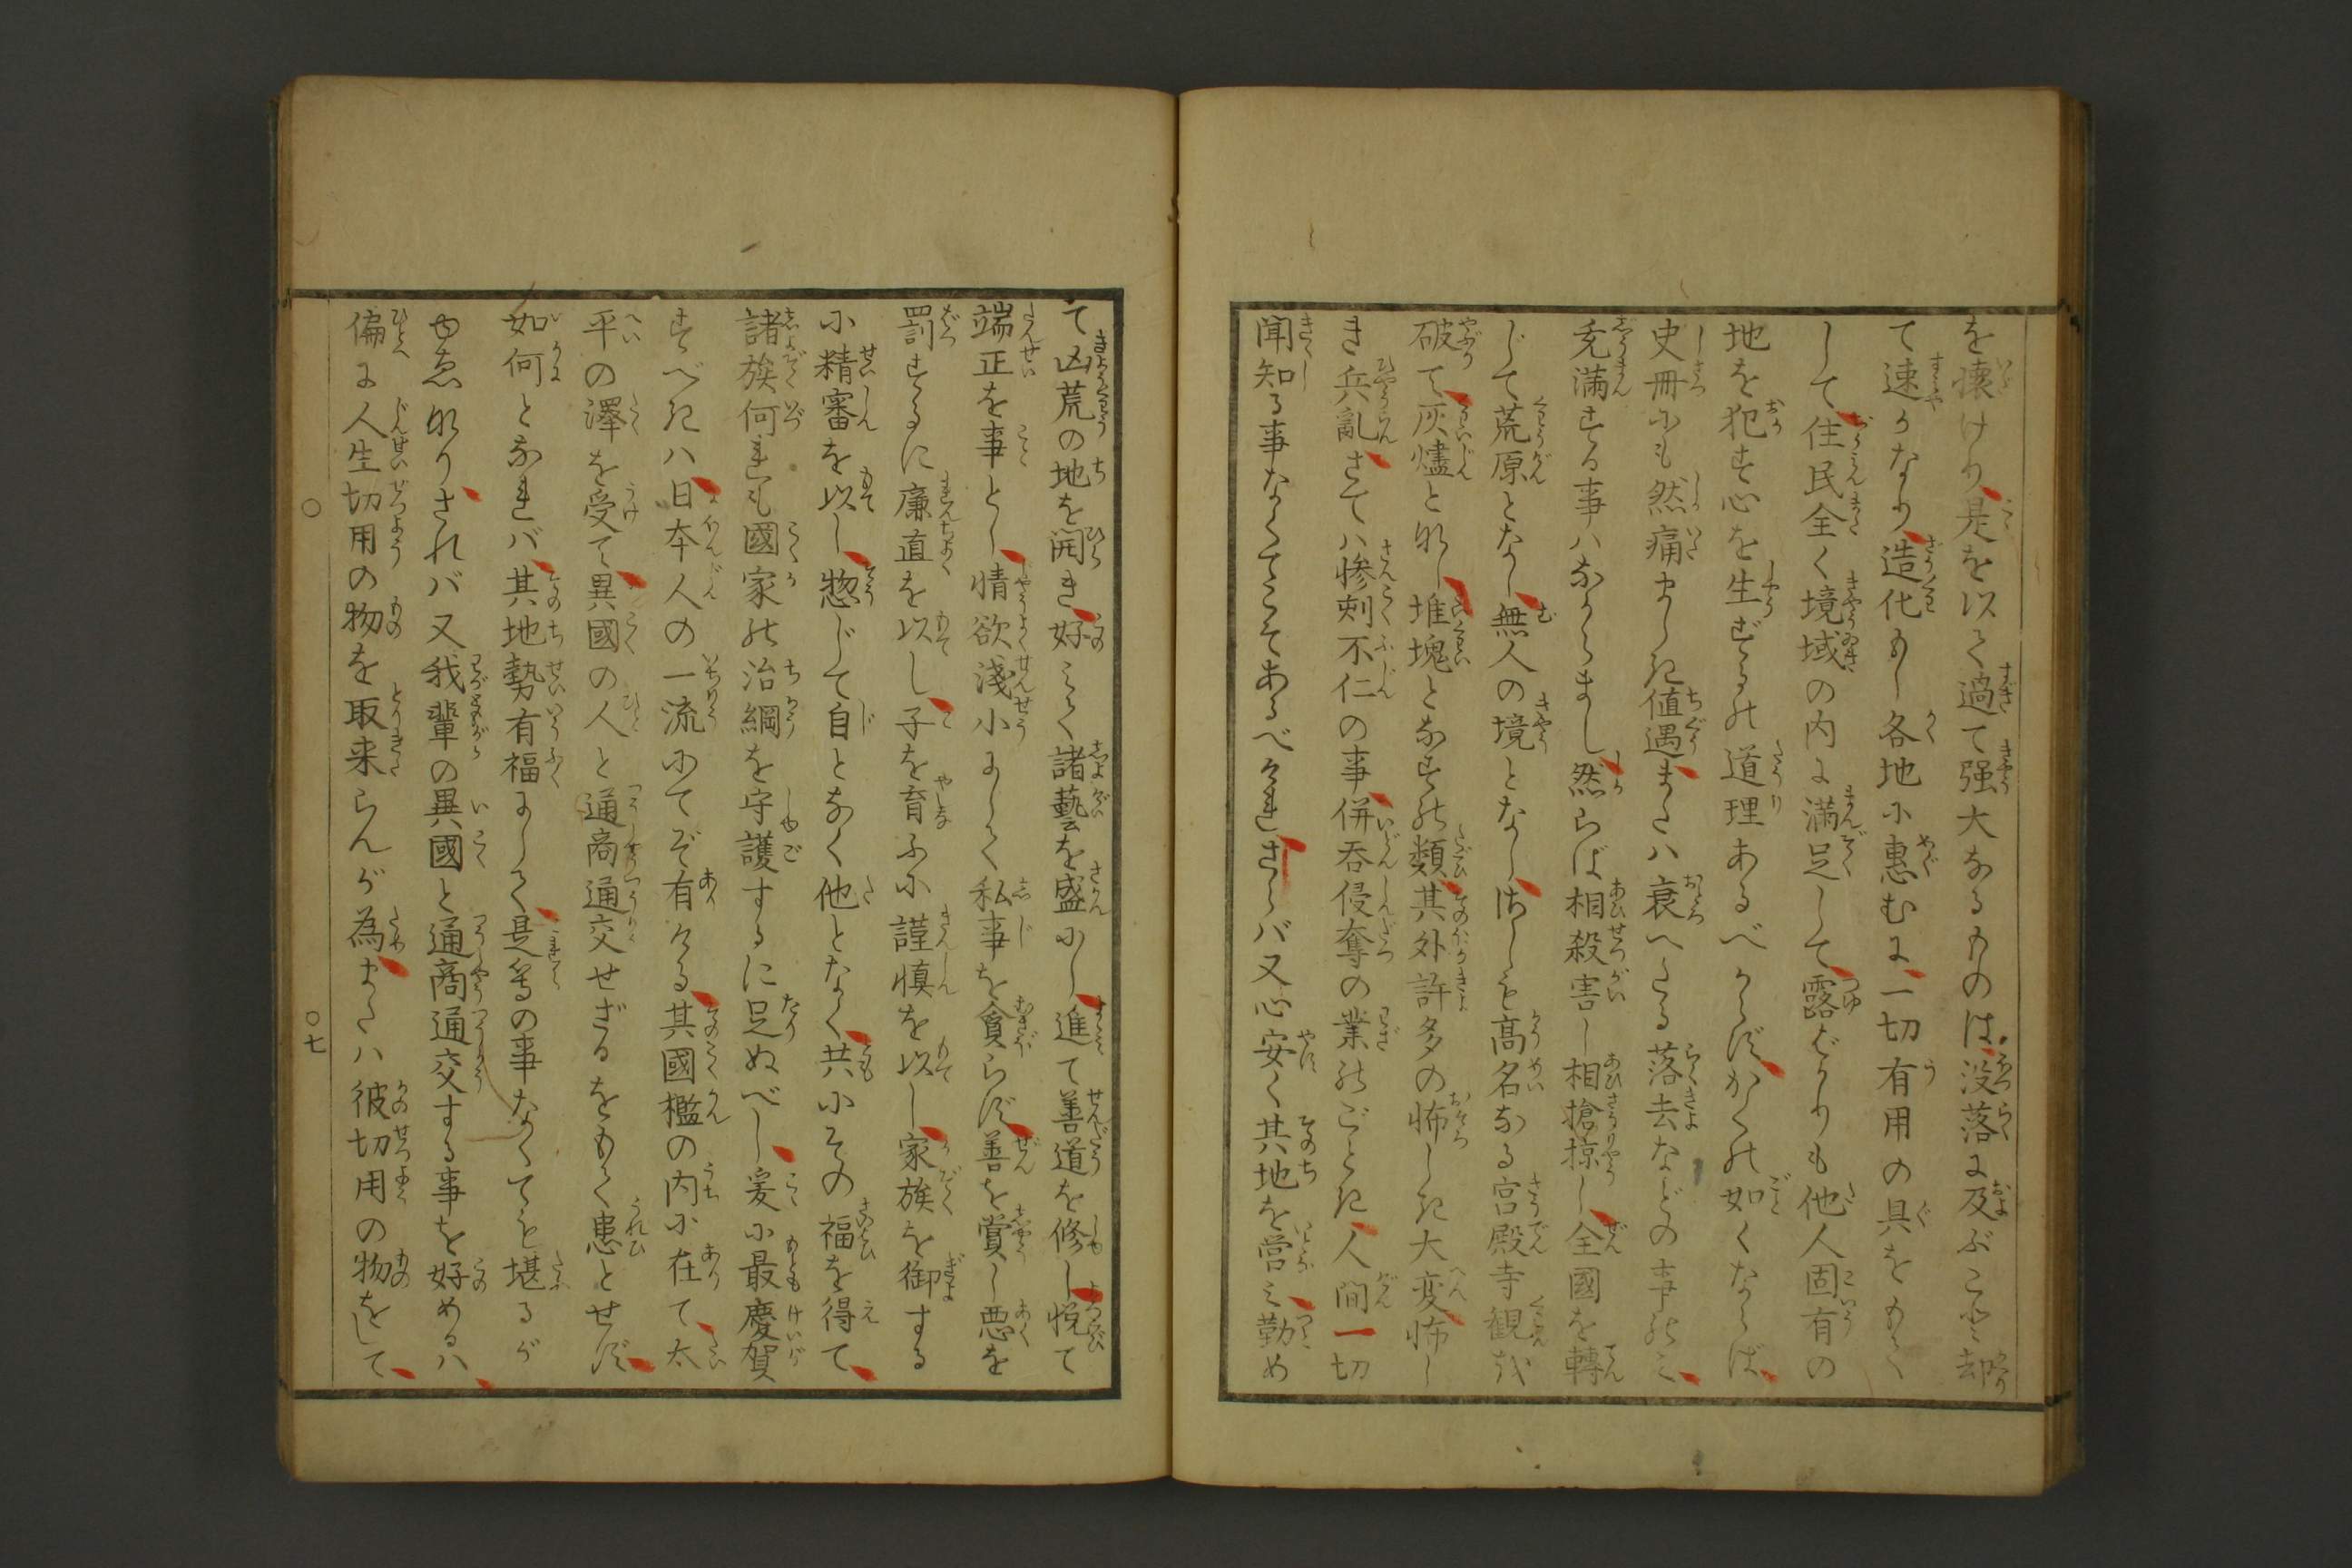 を懐けり是を以て過て强大なるものは没落に及ぶこと却
て速かなり造化もし各地に惠むに一切有用の具をもて
して住民全く境域の内に満足して露ばかりも他人固有の
地を犯す心を生ずるの道理あるべからずかくの如くならば
史冊にも然痛ましき値遇または衰へたる落去などの事のミ
充満する事ハなからまし然らば相殺害し相搶掠し全國を轉
じて荒原となし無人の境となし
髙名なる宮殿寺観を
破て灰燼となし堆塊となすの類其外許多の怖しき大変怖し
き兵亂さてハ惨刺不仁の事併呑侵奪の業のごとき人間一切
聞知る事なくてこそあるべけれさらバ又心安く其地を営ミ勤め
て凶荒の地を開き好ミて諸藝を盛にし進て善道を修し悦て
端正を事とし情欲淺小にして私事を貪らず善を賞し悪を
罰するに廉直を以し子を育ふに謹慎を以し家族を御する
に精審を以し惣じて自となく他となく共にその福を得て
諸族何れも國家の治綱を守護するに足ぬべし爰に最慶賀
すべきハ日本人の一流にてぞ有ける其國檻の内に在て太
平の澤を受て異國の人と通商通交せざるをもて患とせず
如何となれバ其地勢有福にして是等の事なくてを堪るが
ゆゑなりされバ又我輩の異國と通商通交する事を好めるハ
偏に人生切用の物を取来らんが為または彼切用の物をして
〇
〇七